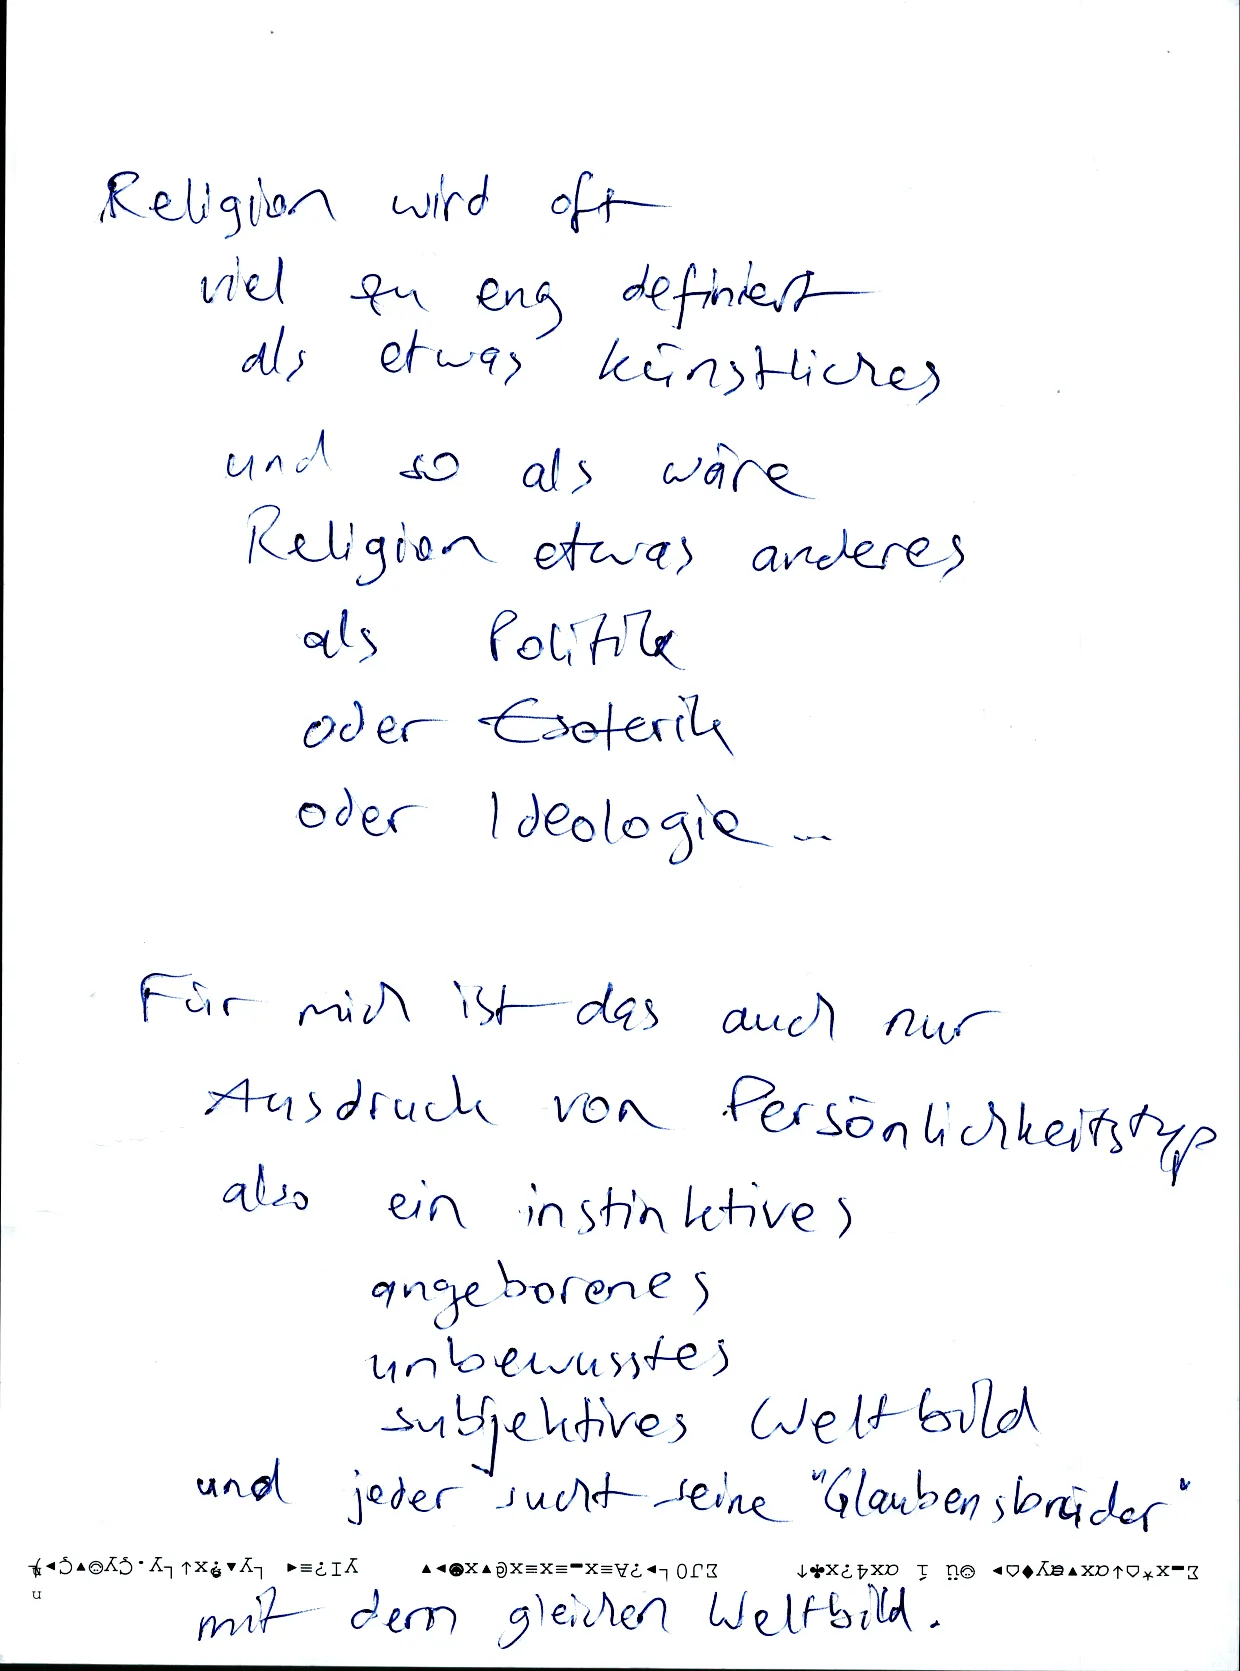 Religion wird oft
viel zu eng definiert
als etwas künstliches
und so als wäre
Religion etwas anderes
als Politik
oder Esoterik
oder Ideologie...
Für mich ist das auch nur
Ausdruck von Persönlichkeitstyp
also ein instinktives
angeborenes
unbewusstes
subjektives Weltbild
und jeder sucht seine "Glaubensbrüder"
mit dem gleichen Weltbild.